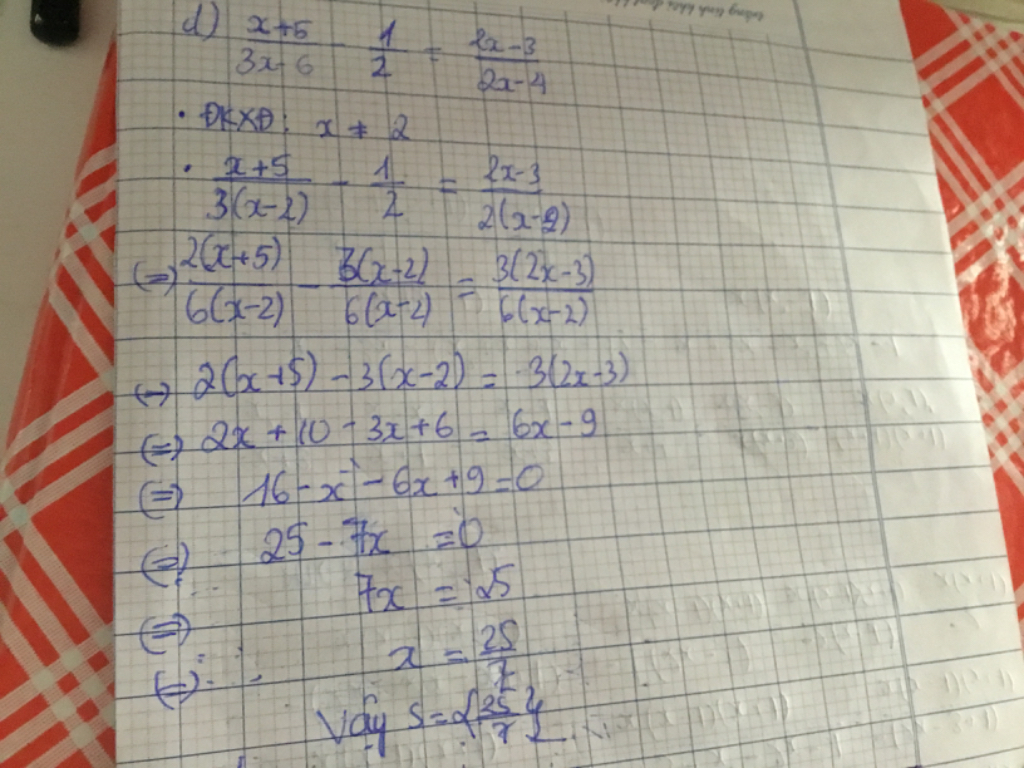 d) \frac{x+5}{3x-6} - \frac{1}{2} = \frac{2x-3}{2x-4}
• ĐKXĐ: x ≠ 2
• \frac{x+5}{3(x-2)} - \frac{1}{2} = \frac{2x-3}{2(x-2)}
(=) \frac{2(x+5)}{6(x-2)} - \frac{3(x-2)}{6(x-2)} = \frac{3(2x-3)}{6(x-2)}
(=) 2(x+5) - 3(x-2) = 3(2x-3)
(=) 2x + 10 - 3x + 6 = 6x - 9
(=) 16 - x - 6x + 9 = 0
(=) 25 - 7x = 0
(=) 7x = 25
(=) x = \frac{25}{7}
Vậy S = {\frac{25}{7}}